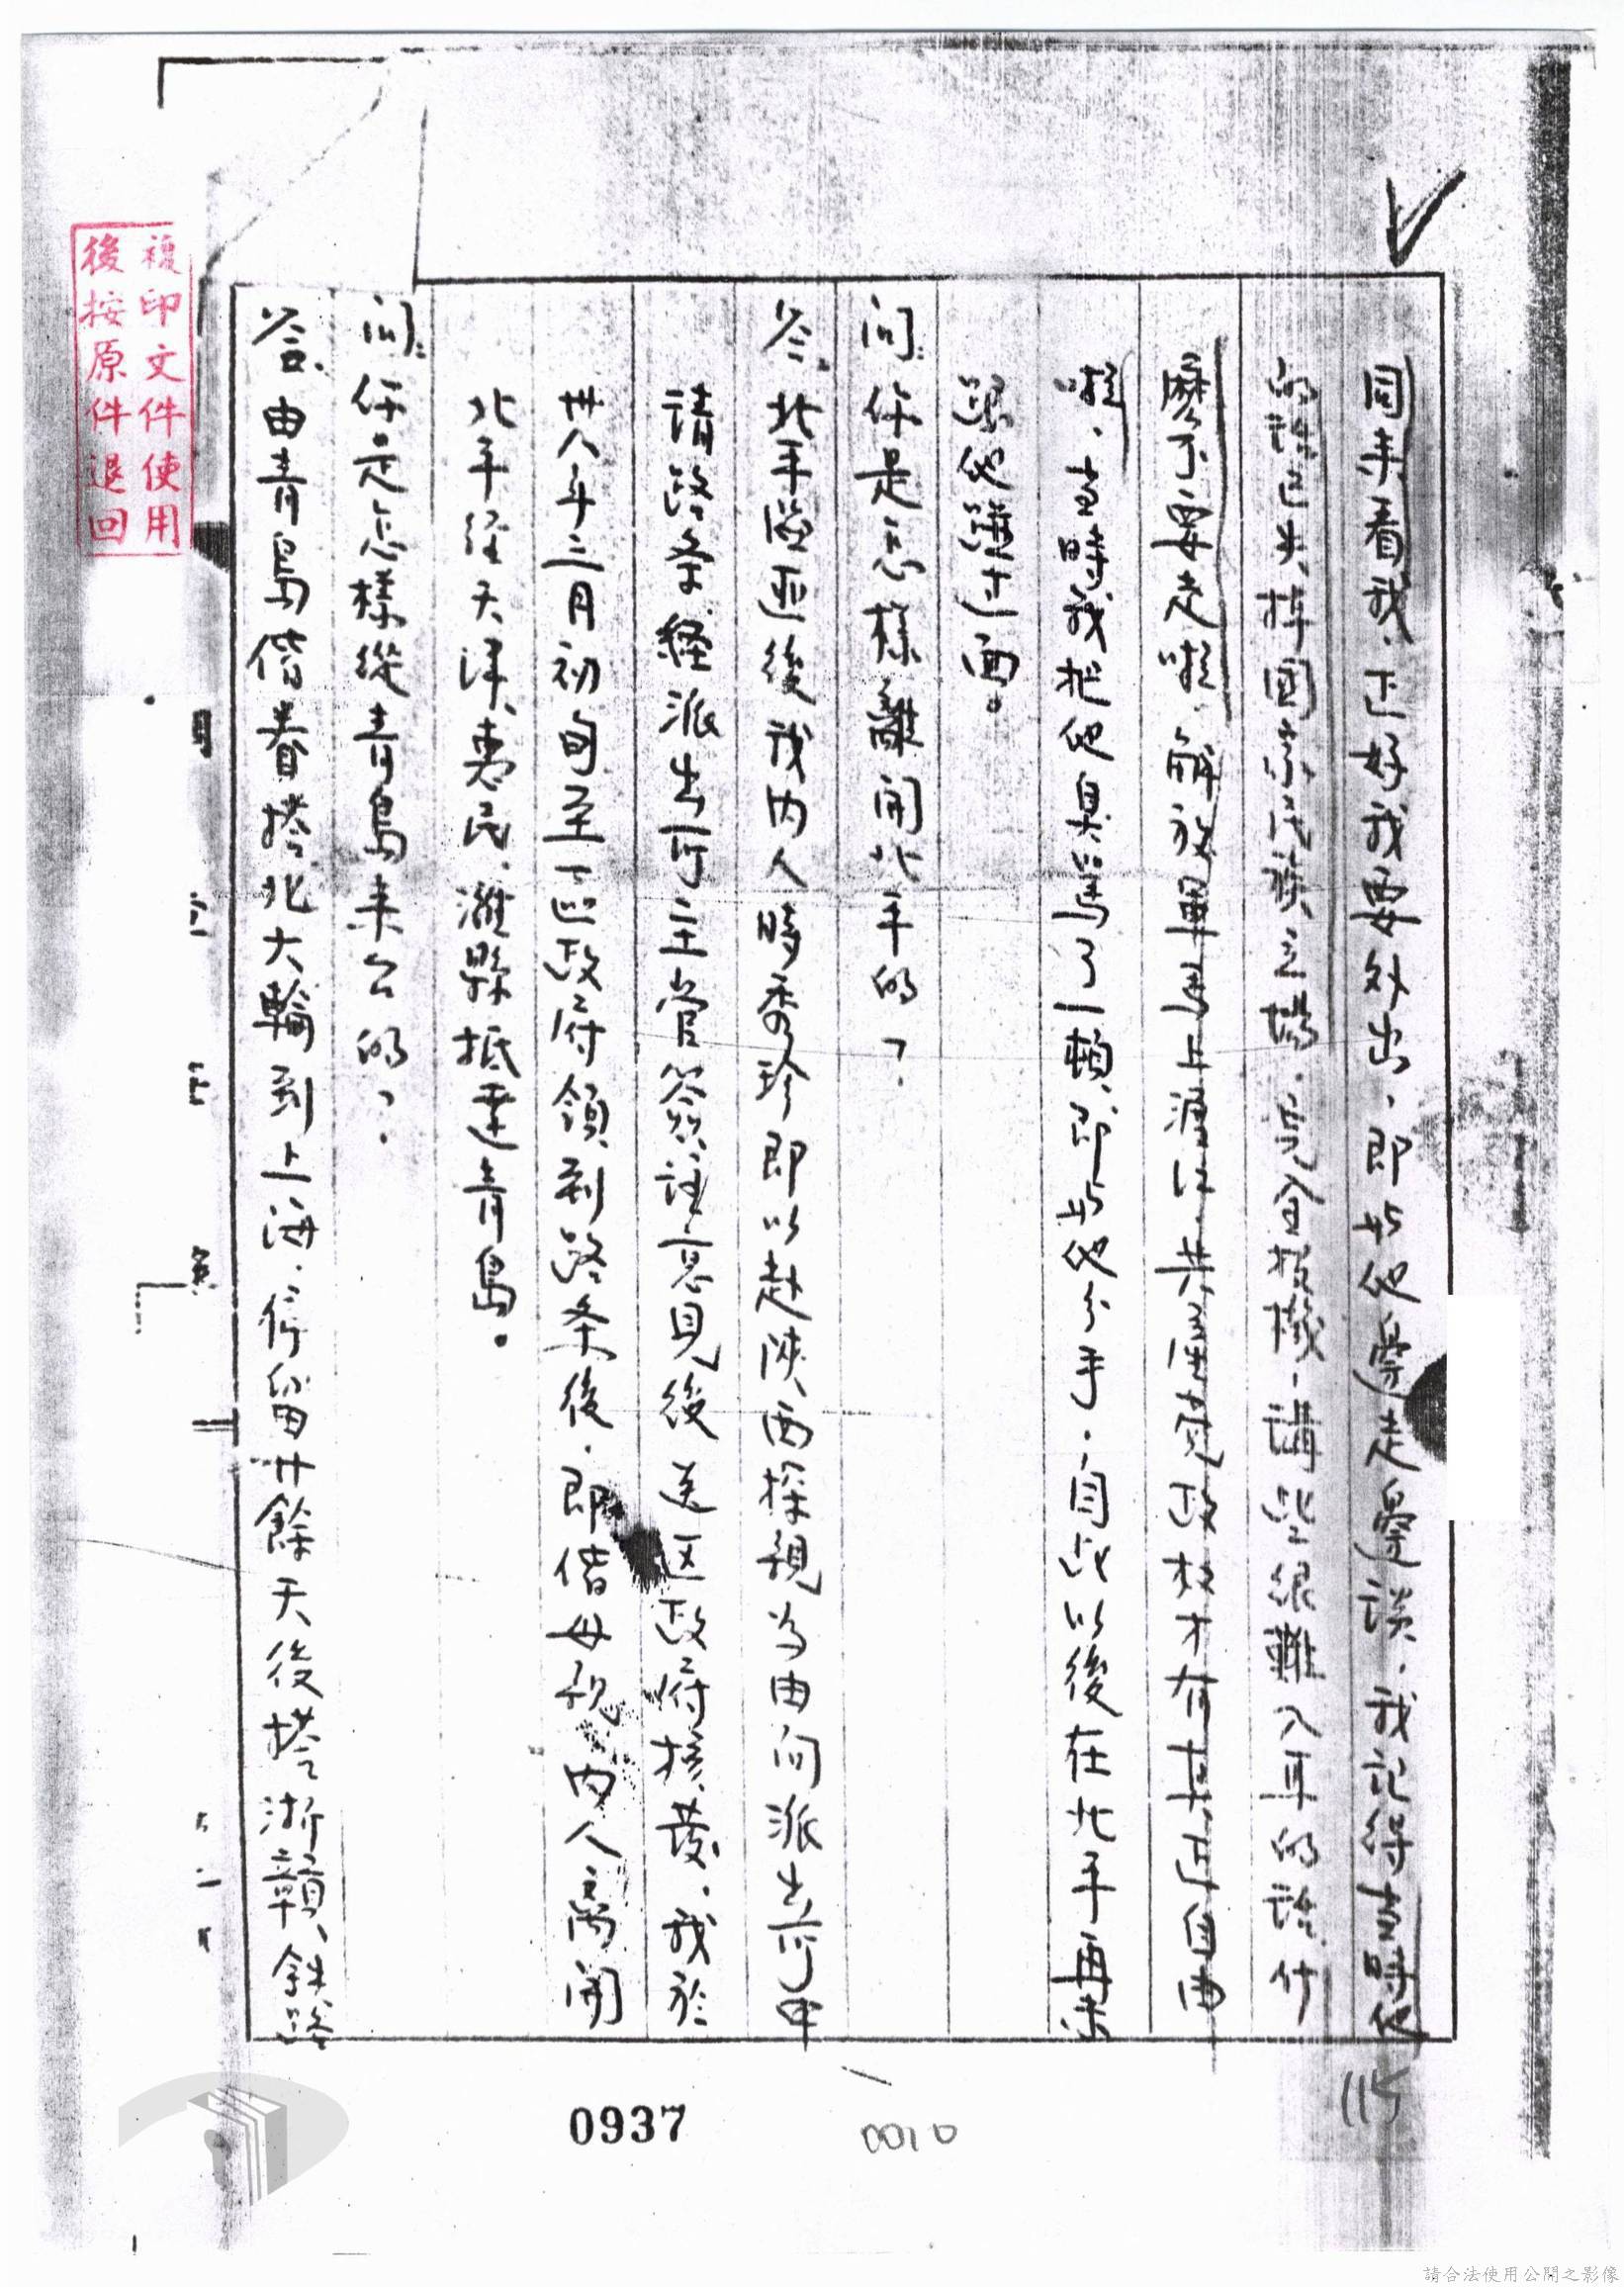 回來看我,正好我要外出,即与他邊走邊談,我記得當時他
的談已失掉國家民族立場,完全投機,講些很難入耳的話,什
麼不要走啦,解放軍
啦,當時我把他責罵了一頓,即与他分手,自此以後在北平再未
跟他談过面。
问:你是怎樣離開北平的?
答:北平匪區後我内人 秀珍即以赴陝西探親为由向派出所申
請路条,經派出所主管簽註意見後送区政府核發,我於
卅八年三月初旬至一區政府領到路条後,即偕母親、内人离開
北平經天津、惠民、濰縣抵達青島。
问:你是怎樣從青島來台的?
答:由青島偕眷搭北大輪到上海,停留廿餘天後搭浙贛、鉄路
複印文件使用
後按原件退回
0937
0010
115
請合法使用公開之影像